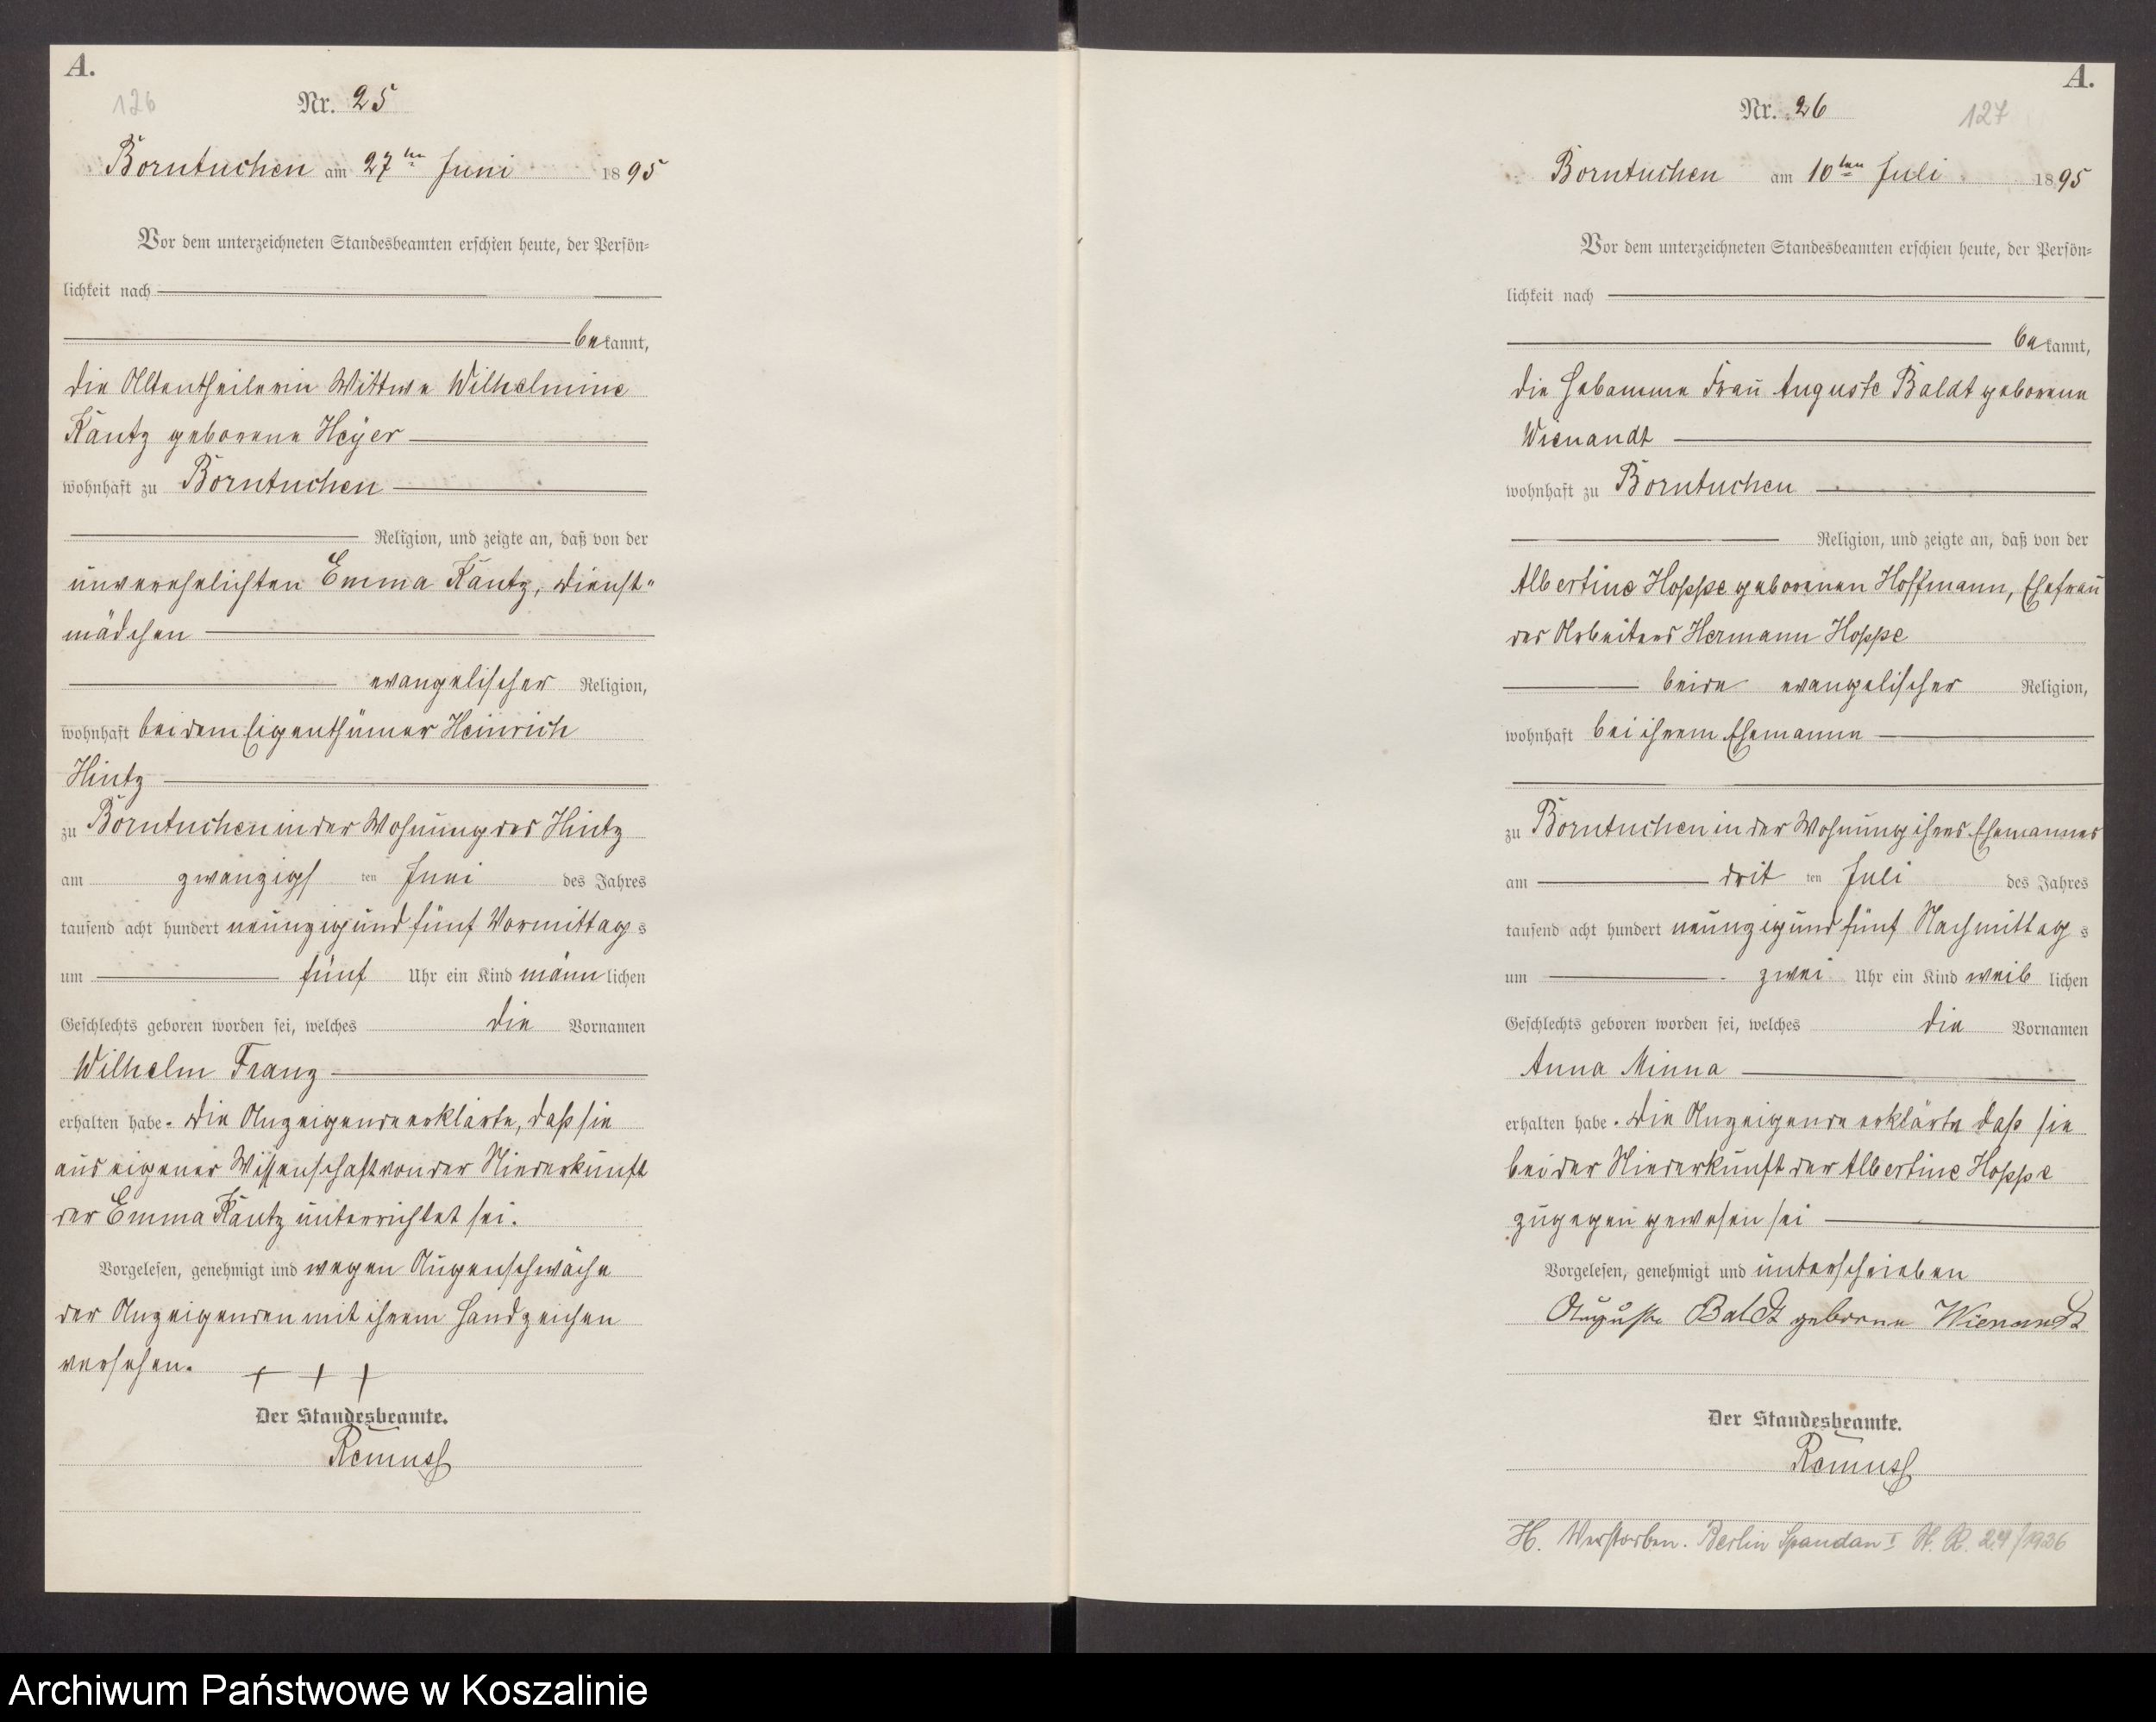 A.
126
Nr. 25
Borntuchen am 27ten Juni 1895
Vor dem unterzeichneten Standesbeamten erschien heute, der Persön-
lichkeit nach
bekannt,
die Altentheilerin Wittwe Wilhelmine
Kautz geborene Heyer
wohnhaft zu Borntuchen
Religion, und zeigte an, daß von der
unverehelichten Emma Kautz, Dienst-
mädchen
evangelischer Religion,
wohnhaft bei dem Eigenthümer Heinrich
Hintz
zu Borntuchen in der Wohnung des Hintz
am zwanzigsten Juni des Jahres
tausend acht hundert neunzig und fünf Vormittags
um fünf Uhr ein Kind männlichen
Geschlechts geboren worden sei, welches die Vornamen
Wilhelm Franz
erhalten habe. Die Anzeigende erklärte, daß sie
aus eigener Wissenschaft von der Niederkunft
der Emma Kautz unterrichtet sei.
Vorgelesen, genehmigt und wegen Augenschwäche
der Anzeigenden mit ihrem Handzeichen
versehen. + + +
Der Standesbeamte.
Remuss
A.
Nr. 26
127
Borntuchen am 10ten Juli 1895
Vor dem unterzeichneten Standesbeamten erschien heute, der Persön-
lichkeit nach
bekannt,
die Hebamme Frau Auguste Baldt geborene
Wienandt
wohnhaft zu Borntuchen
Religion, und zeigte an, daß von der
Albertine Hoppe geborenen Hoffmann, Ehefrau
des Arbeiters Hermann Hoppe
beide evangelischer Religion,
wohnhaft bei ihrem Ehemanne
zu Borntuchen in der Wohnung ihres Ehemannes
am dritten Juli des Jahres
tausend acht hundert neunzig und fünf Nachmittags
um zwei Uhr ein Kind weiblichen
Geschlechts geboren worden sei, welches die Vornamen
Anna Minna
erhalten habe. Die Anzeigende erklärte daß sie
bei der Niederkunft der Albertine Hoppe
zugegen gewesen sei
Vorgelesen, genehmigt und unterschrieben
Auguste Baldt geborene Wienandt
Der Standesbeamte.
Remuss
H. Verstorben. Berlin Spandau I H. R. 24/1936
Archiwum Państwowe w Koszalinie